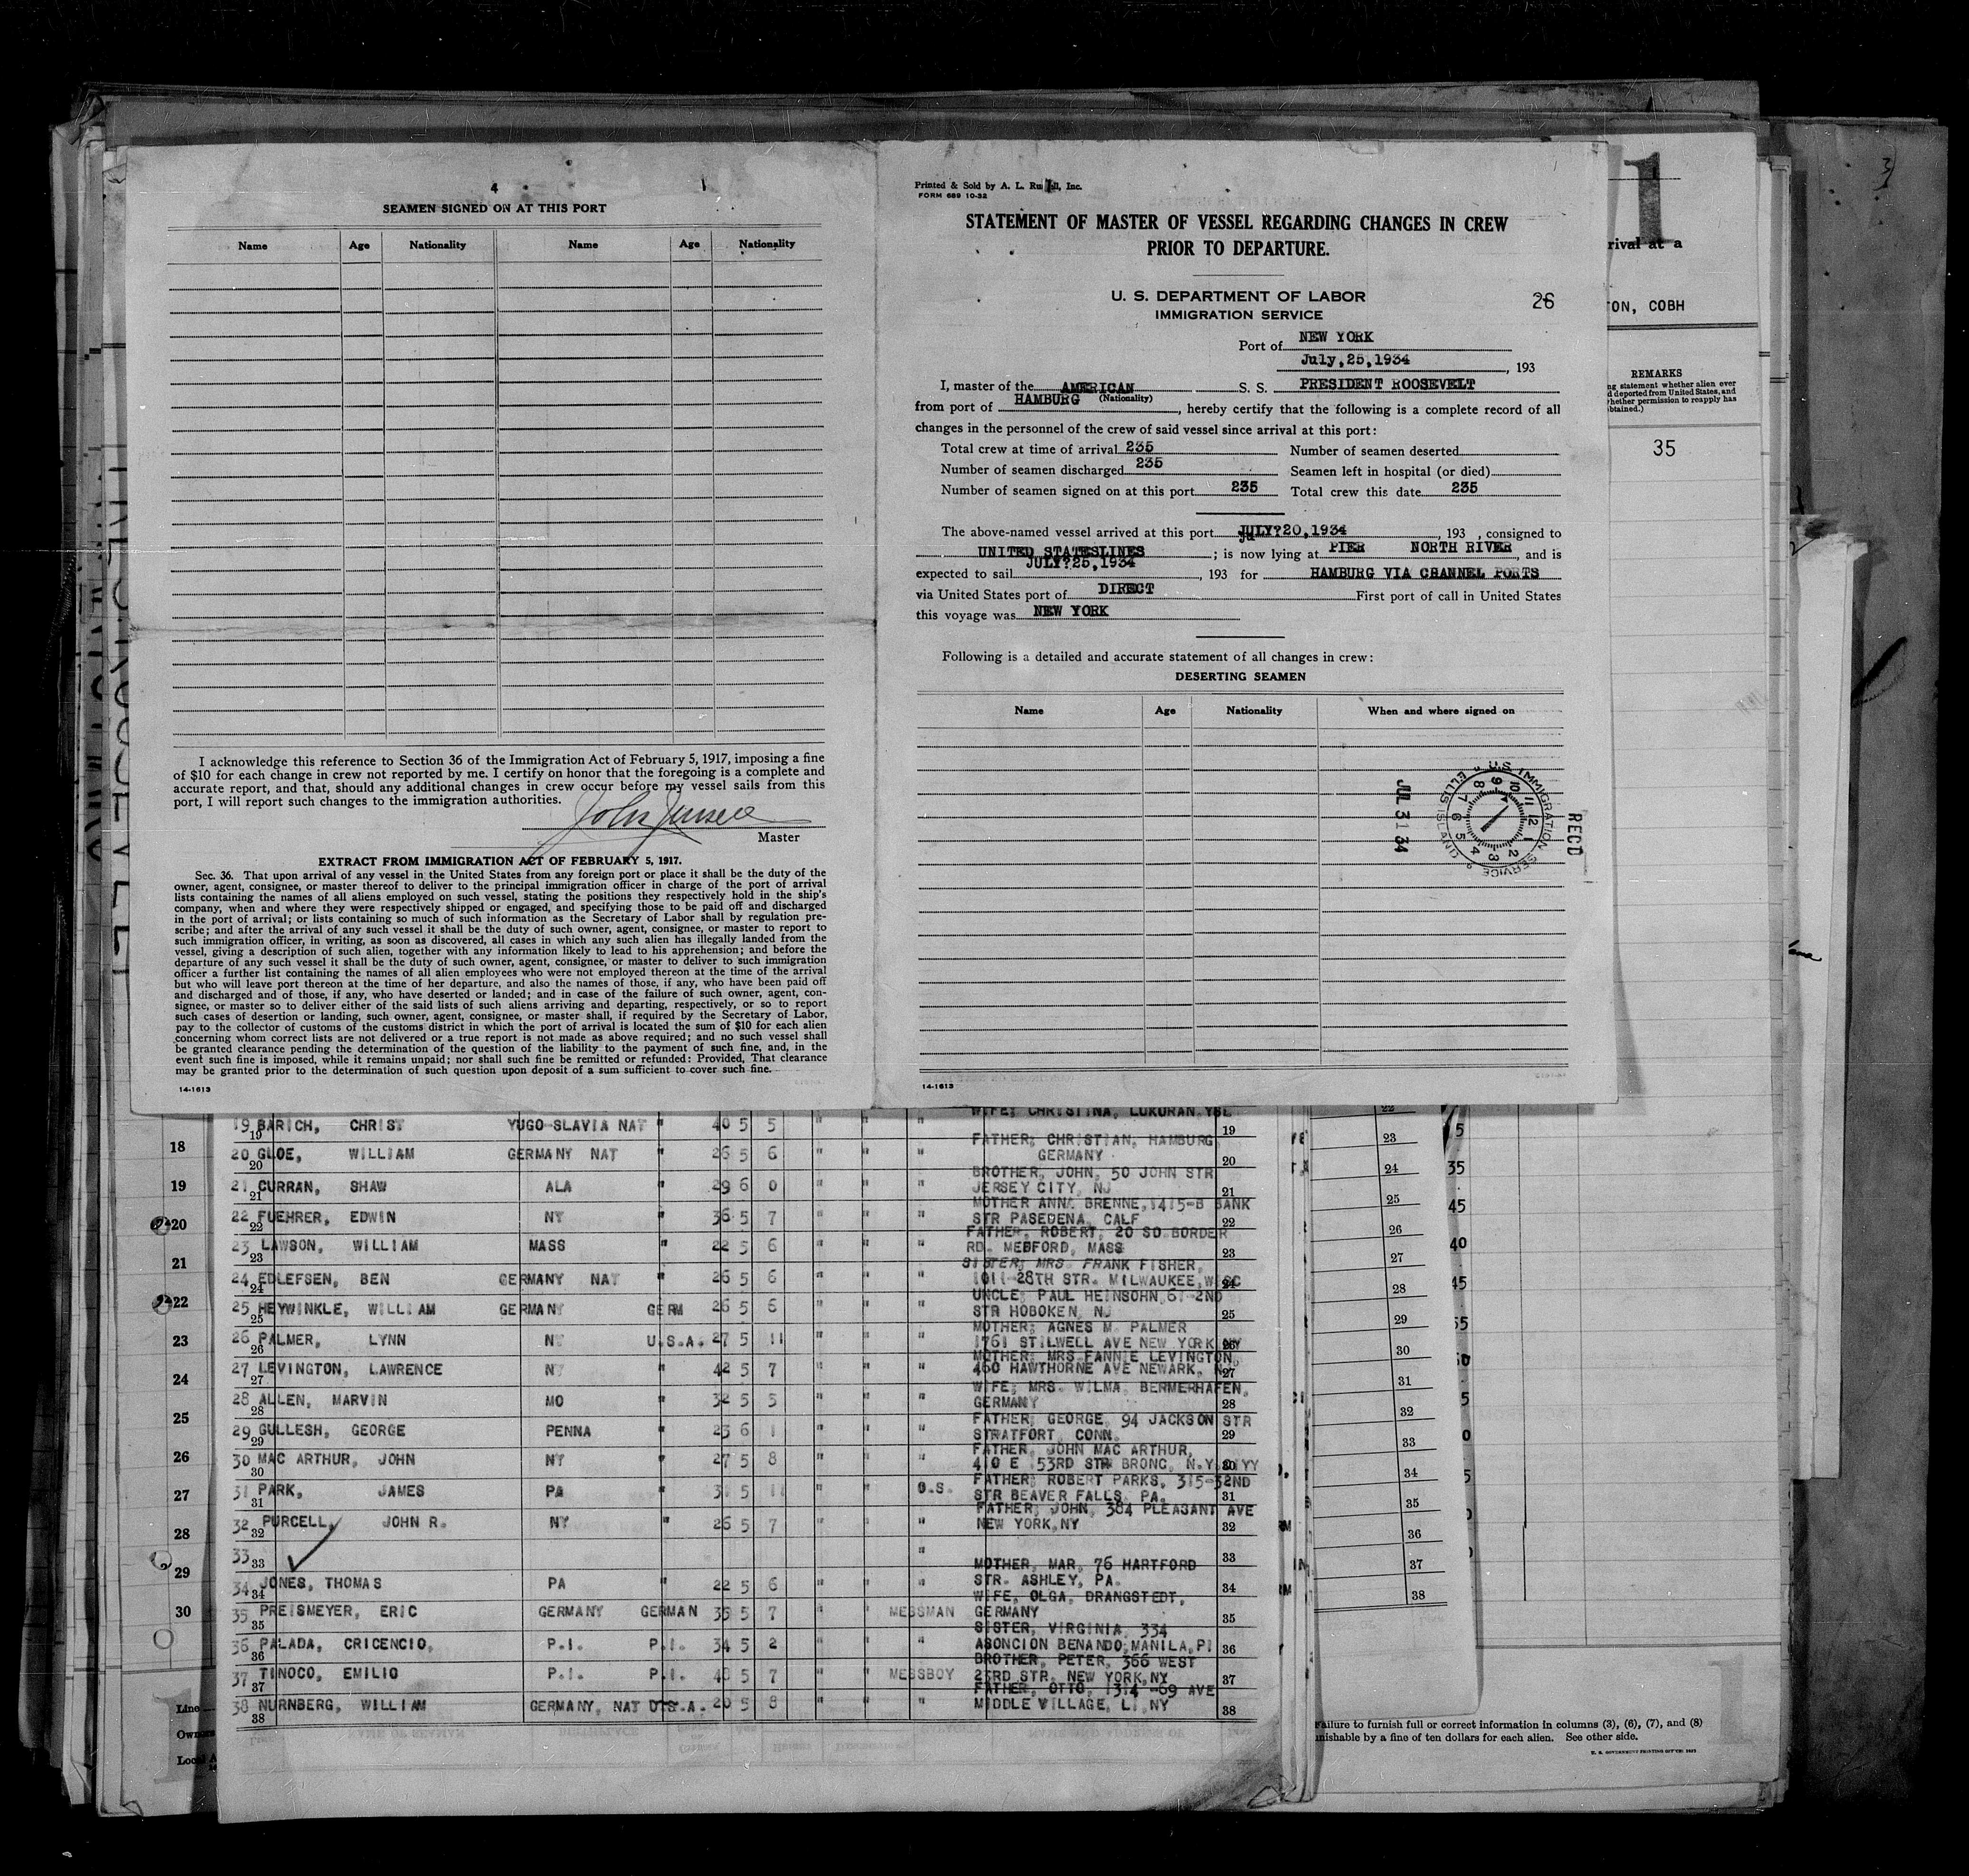 4
SEAMEN SIGNED ON AT THIS PORT
Name Age Nationality Name Age Nationality
I acknowledge this reference to Section 36 of the Immigration Act of February 5, 1917, imposing a fine
of $10 for each change in crew not reported by me. I certify on honor that the foregoing is a complete and
accurate report, and that, should any additional changes in crew occur before my vessel sails from this
port, I will report such changes to the immigration authorities.
John Jensen
Master
EXTRACT FROM IMMIGRATION ACT OF FEBRUARY 5, 1917.
Sec. 36. That upon arrival of any vessel in the United States from any foreign port or place it shall be the duty of the
owner, agent, consignee, or master thereof to deliver to the principal immigration officer in charge of the port of arrival
lists containing the names of all aliens employed on such vessel, stating the positions they respectively hold in the ship's
company, when and where they were respectively shipped or engaged, and specifying those to be paid off and discharged
in the port of arrival; or lists containing so much of such information as the Secretary of Labor shall by regulation pre-
scribe; and after the arrival of any such vessel it shall be the duty of such owner, agent, consignee, or master to report to
such immigration officer, in writing, as soon as discovered, all cases in which any such alien has illegally landed from the
vessel, giving a description of such alien, together with any information likely to lead to his apprehension; and before the
departure of any such vessel it shall be the duty of such owner, agent, consignee, or master to deliver to such immigration
officer a further list containing the names of all alien employees who were not employed thereon at the time of the arrival
but who will leave port thereon at the time of her departure, and also the names of those, if any, who have been paid off
and discharged and of those, if any, who have deserted or landed; and in case of the failure of such owner, agent, con-
signee, or master so to deliver either of the said lists of such aliens arriving and departing, respectively, or so to report
such cases of desertion or landing, such owner, agent, consignee, or master shall, if required by the Secretary of Labor,
pay to the collector of customs of the customs district in which the port of arrival is located the sum of $10 for each alien
concerning whom correct lists are not delivered or a true report is not made as above required; and no such vessel shall
be granted clearance pending the determination of the question of the liability to the payment of such fine, and, in the
event such fine is imposed, while it remains unpaid; nor shall such fine be remitted or refunded: Provided, That clearance
may be granted prior to the determination of such question upon deposit of a sum sufficient to cover such fine.
14-1613
Printed & Sold by A. L. Inc.
FORM 689 10-32
STATEMENT OF MASTER OF VESSEL REGARDING CHANGES IN CREW
PRIOR TO DEPARTURE.
U. S. DEPARTMENT OF LABOR
IMMIGRATION SERVICE
26
Port of NEW YORK
July,25,1934, 193
I, master of the AMERICAN S. S. PRESIDENT ROOSEVELT
(Nationality)
from port of HAMBURG, hereby certify that the following is a complete record of all
changes in the personnel of the crew of said vessel since arrival at this port:
Total crew at time of arrival 235 Number of seamen deserted
Number of seamen discharged 235 Seamen left in hospital (or died)
Number of seamen signed on at this port 235 Total crew this date 235
The above-named vessel arrived at this port JULY?20,1934, 193 , consigned to
UNITED STATESLINES; is now lying at PIER NORTH RIVER, and is
expected to sail JULY?25,1934, 193 for HAMBURG VIA CHANNEL PORTS
via United States port of DIRECT First port of call in United States
this voyage was NEW YORK
Following is a detailed and accurate statement of all changes in crew:
DESERTING SEAMEN
Name Age Nationality When and where signed on
REC'D
U.S. IMMIGRATION SERVICE ELLIS ISLAND
JUL 31 34
14-1613
1
rival at a
TON, COBH
REMARKS
ng statement whether alien ever
d deported from United States, and
whether permission to reapply has
btained.)
35
WIFE; CHRISTINA, LUKORAN YSL
19 BARICH, CHRIST YUGO-SLAVIA NAT " 40 5 5 " " 19
20 GLOE, WILLIAM GERMANY NAT " 26 5 6 " " FATHER; CHRISTIAN, HAMBURG
GERMANY 20
21 CURRAN, SHAW ALA " 29 6 0 " " BROTHER, JOHN, 50 JOHN STR
JERSEY CITY, NJ 21
22 FUEHRER, EDWIN NY " 36 5 7 " " MOTHER ANNA BRENNE, 1415-B BANK
STR PASEDENA, CALF 22
23 LAWSON, WILLIAM MASS " 22 5 6 " " FATHER, ROBERT, 20 SO BORDER
RD. MEDFORD, MASS 23
24 EDLEFSEN, BEN GERMANY NAT " 26 5 6 " " SISTER; MRS FRANK FISHER,
1011-28TH STR. MILWAUKEE, WISC 24
25 HEYWINKLE, WILLIAM GERMANY GERM 26 5 6 " " UNCLE; PAUL HEINSOHN, 61-2ND
STR HOBOKEN, NJ 25
26 PALMER, LYNN NY U.S.A. 27 5 11 " " MOTHER; AGNES M. PALMER
1761 STILWELL AVE NEW YORK NY 26
27 LEVINGTON, LAWRENCE NY " 42 5 7 " " MOTHER; MRS FANNIE LEVINGTON,
460 HAWTHORNE AVE NEWARK, NJ 27
28 ALLEN, MARVIN MO " 32 5 5 " " WIFE; MRS. WILMA, BERMERHAFEN,
GERMANY 28
29 GULLESH, GEORGE PENNA " 23 6 1 " " FATHER; GEORGE, 94 JACKSON STR
STRATFORT, CONN. 29
30 MAC ARTHUR, JOHN NY " 27 5 8 " " FATHER, JOHN MAC ARTHUR,
410 E 53RD STR BRONC, N.Y. 30
31 PARK, JAMES PA " 31 5 11 " O.S. FATHER; ROBERT PARKS, 315-32ND
STR BEAVER FALLS, PA. 31
32 PURCELL, JOHN R. NY " 26 5 7 " " FATHER; JOHN, 384 PLEASANT AVE
NEW YORK,NY 32
33 " 33
34 JONES, THOMAS PA " 22 5 6 " " MOTHER, MAR, 76 HARTFORD
STR. ASHLEY, PA. 34
35 PREISMEYER, ERIC GERMANY GERMAN 35 5 7 " MESSMAN WIFE, OLGA, DRANGSTEDT,
GERMANY 35
36 PALADA, CRICENCIO, P.I. P.I. 34 5 2 " " SISTER, VIRGINIA, 334
ASONCION BENANDO, MANILA, PI 36
37 TINOCO, EMILIO P.I. P.I. 40 5 7 " MESSBOY BROTHER, PETER, 366 WEST
23RD STR. NEW YORK,NY 37
38 NURNBERG, WILLIAM GERMANY, NAT U.S.A. 20 5 8 " " FATHER, OTTO, 1314-69 AVE
MIDDLE VILLAGE, LI,NY 38
18
19
20
21
22
23
24
25
26
27
28
29
30
Line
Owners
Local A
22
23
24
25
26
27
28
29
30
31
32
33
34
35
36
37
38
35
45
40
45
Failure to furnish full or correct information in columns (3), (6), (7), and (8)
unishable by a fine of ten dollars for each alien. See other side.
U. S. GOVERNMENT PRINTING OFFICE